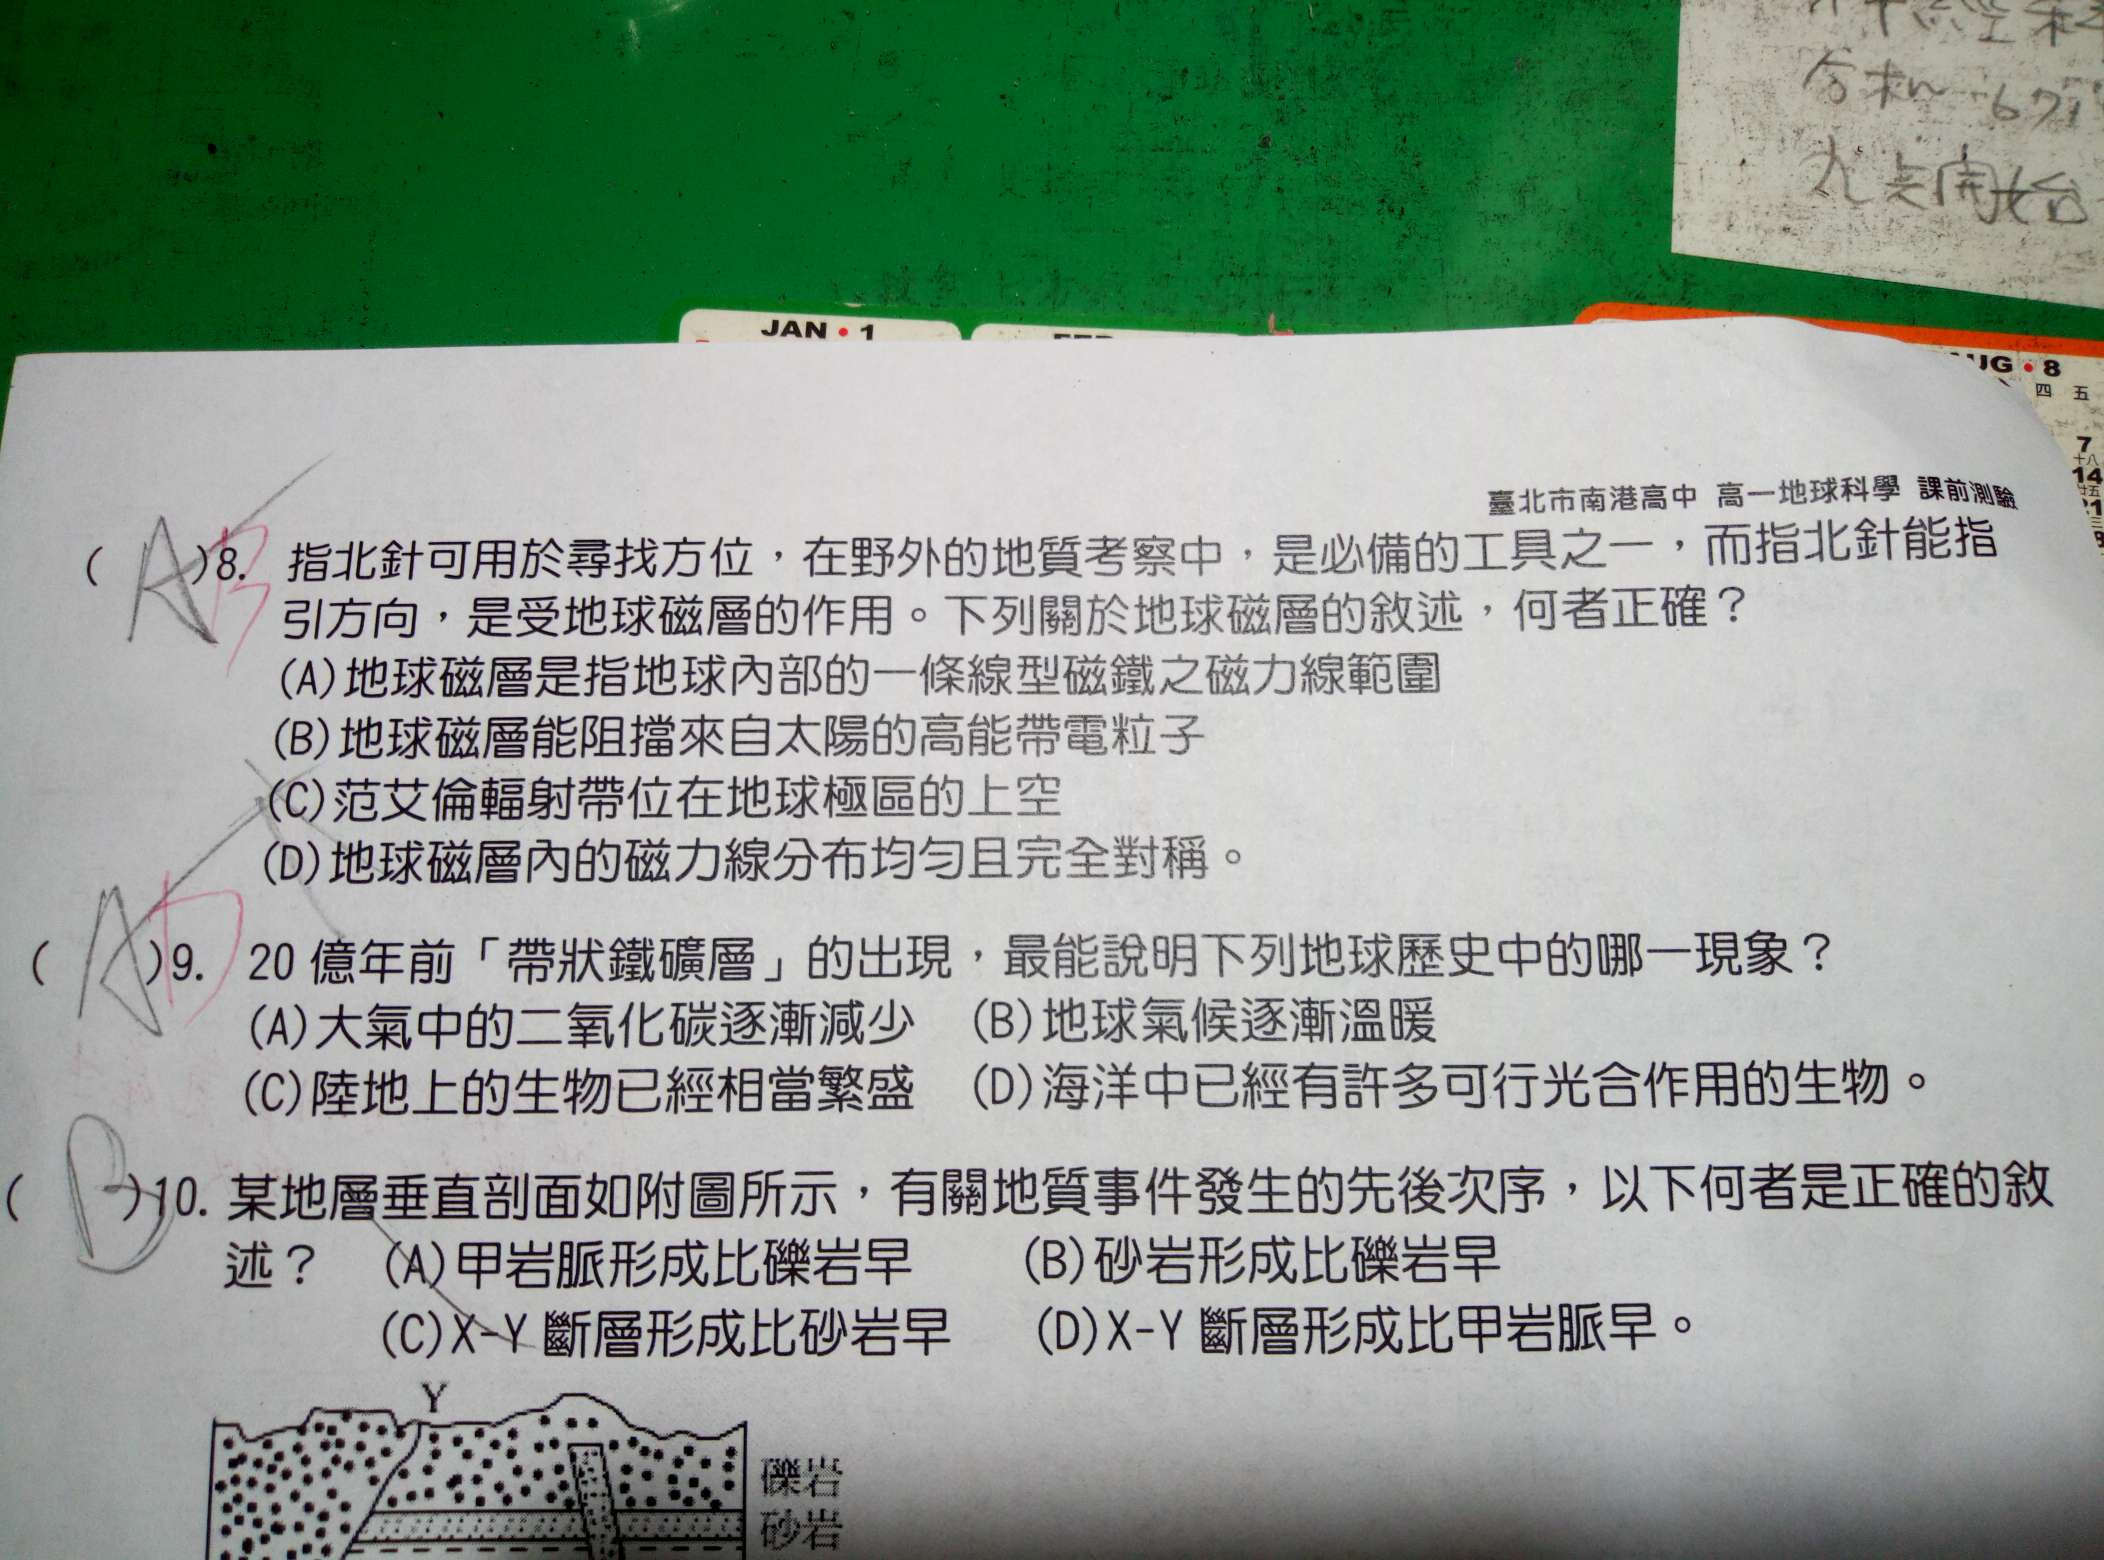 九点開始
JAN • 1
AUG • 8
四 五
7
14
臺北市南港高中 高一地球科學 課前測驗
( A )8. 指北針可用於尋找方位，在野外的地質考察中，是必備的工具之一，而指北針能指
B
引方向，是受地球磁層的作用。下列關於地球磁層的敘述，何者正確？
(A)地球磁層是指地球內部的一條線型磁鐵之磁力線範圍
(B)地球磁層能阻擋來自太陽的高能帶電粒子
(C)范艾倫輻射帶位在地球極區的上空
(D)地球磁層內的磁力線分布均勻且完全對稱。
( A )9. 20 億年前「帶狀鐵礦層」的出現，最能說明下列地球歷史中的哪一現象？
D
(A)大氣中的二氧化碳逐漸減少 (B)地球氣候逐漸溫暖
(C)陸地上的生物已經相當繁盛 (D)海洋中已經有許多可行光合作用的生物。
( B )10. 某地層垂直剖面如附圖所示，有關地質事件發生的先後次序，以下何者是正確的敘
述？ (A)甲岩脈形成比礫岩早 (B)砂岩形成比礫岩早
(C)X-Y 斷層形成比砂岩早 (D)X-Y 斷層形成比甲岩脈早。
Y
礫岩
砂岩